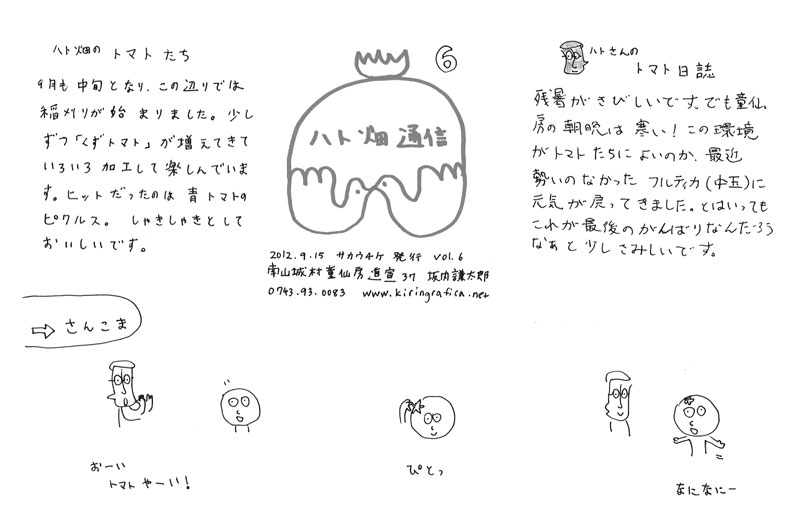 ハト畑の トマト たち
9月も 中旬となり、この辺りでは
稲刈りが始まりました。少し
ずつ「くずトマト」が増えてきて
いろいろ加工して楽しんでいま
す。ヒットだったのは 青トマトの
ピクルス。しゃきしゃきとして
おいしいです。
⑥
ハト畑通信
2012.9.15 サカウチケ 発行 vol.6
南山城村童仙房道宣37 坂内謙太郎
0743.93.0083 www.kiringrafica.net
ハトさんの
トマト日誌
残暑がさびしいです。でも童仙
房の朝晩は寒い!この環境
がトマトたちによいのか、最近
勢いのなかった フルティカ(中五)に
元気が戻ってきました。とはいっても
これが最後のがんばりなんだろう
なぁと少しさみしいです。
⇒ さんこま
おーい
トマトやーい!
ぴとっ
なになにー